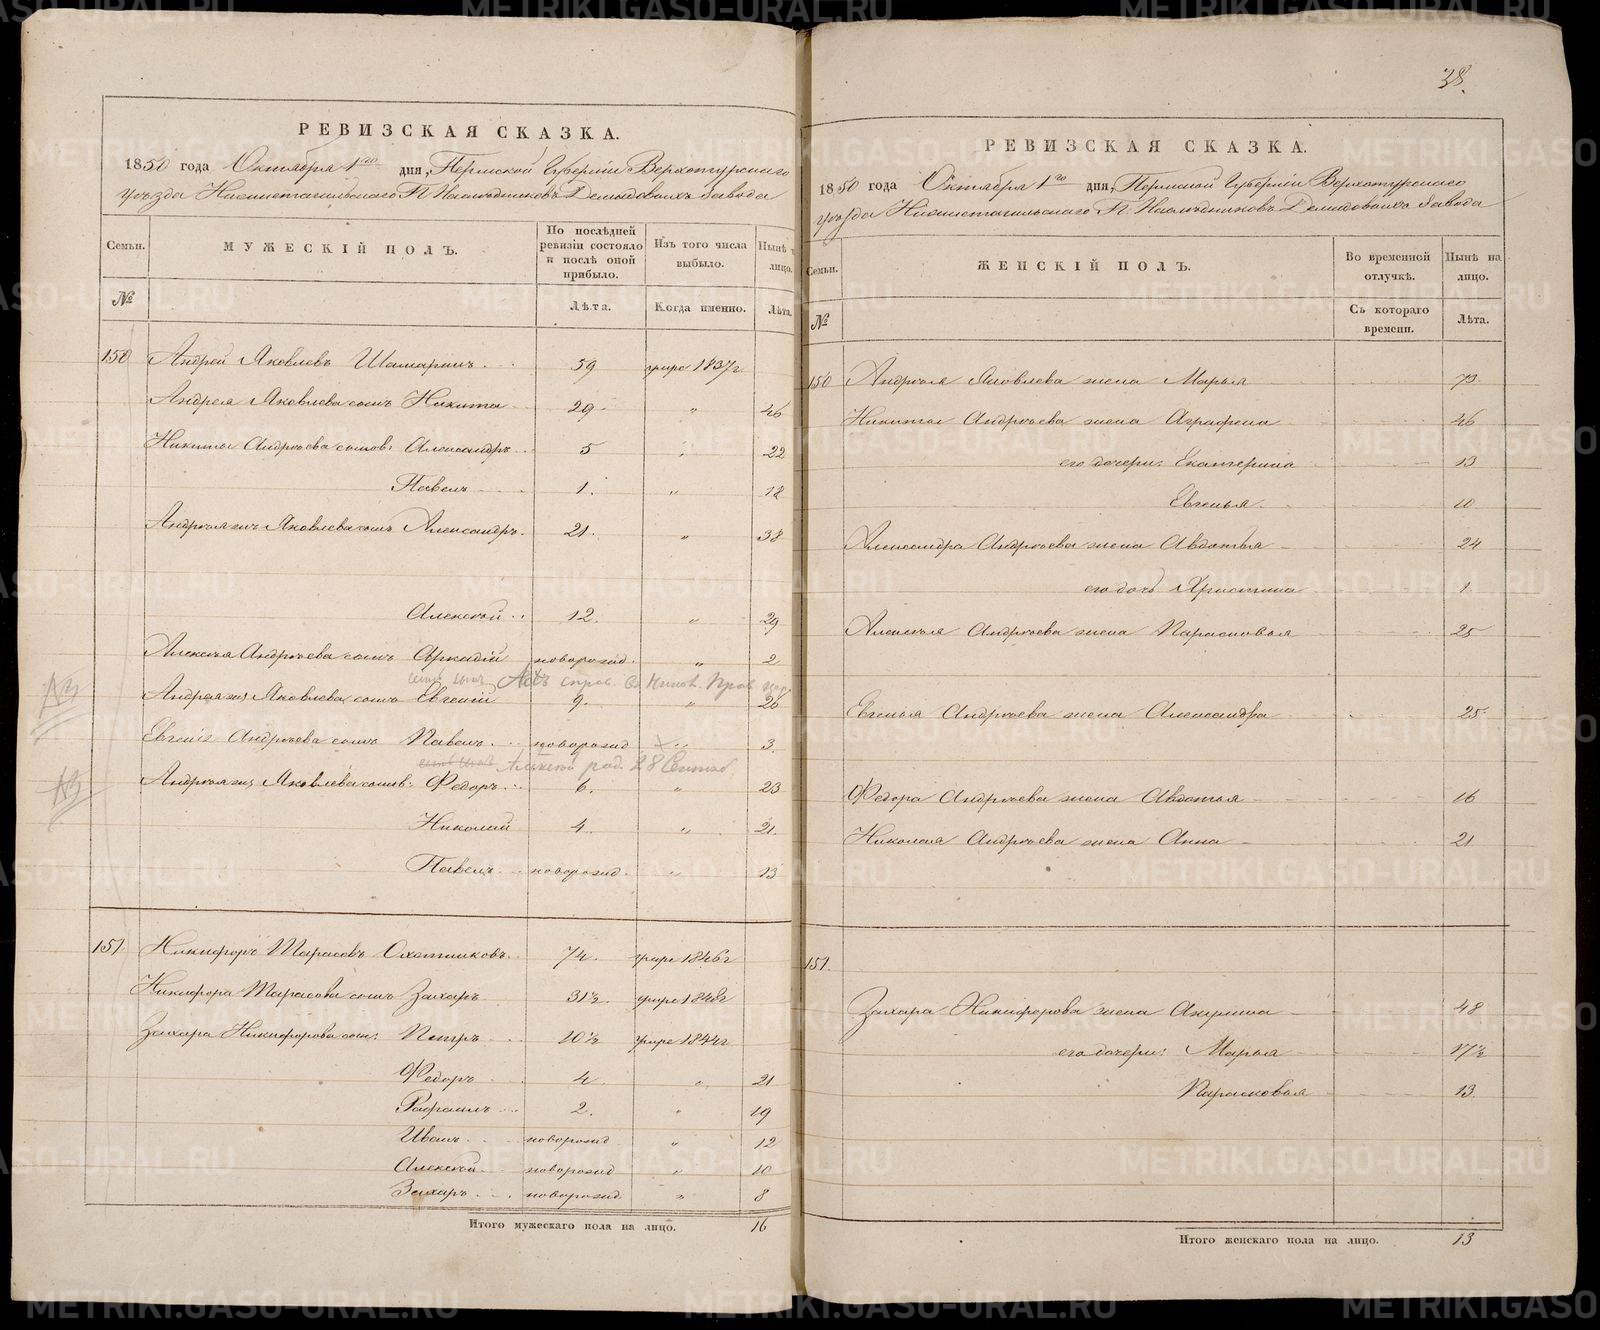 РЕВИЗСКАЯ СКАЗКА.
1850 года Октября 1го дня, Пермской Губерніи Верхотурскаго
уѣзда Нижнетагильскаго Г.г. Наслѣдниковъ Демидовыхъ Завода
Семьи. МУЖЕСКІЙ ПОЛЪ. По послѣдней ревизіи состояло и послѣ оной прибыло. Изъ того числа выбыло. Нынѣ лицо.
№ Лѣта. Когда именно. Лѣта.
150 Андрей Яковлевъ 59 умре 1837г
Андрея Яковлева сынъ Никита 29 " 46
Никиты Андреева сынов: Александръ 5 " 22
Павелъ 1. " 18
Андрея же Яковлева сынъ Александръ 21. " 38
Алексей 12. " 29
Алексея Андреева сынъ Аркадій новорожд. " 2
Андрея же Яковлева сынъ Евгеній 9. " 26
Евгенія Андреева сынъ Павелъ новорожд " 3.
Алексей род. 28 Сентяб
Андрея же Яковлева сынов: Федоръ 6. " 23
Николай 4. " 21.
Павелъ новорожд. " 13
151. Никифоръ Тарасовъ Охотниковъ. 74. умре 1846г
Никифора Тарасова сынъ Захаръ 31½ умре 1848г
Захара Никифорова сын: Петръ 10½ умре 1844г
Федоръ 4. " 21
Рафаилъ 2. " 19
Иванъ новорожд " 12
Алексей новорожд " 10
Захаръ новорожд. " 8
Итого мужескаго пола на лицо. 16
38.
РЕВИЗСКАЯ СКАЗКА.
1850 года Октября 1го дня, Пермской Губерніи Верхотурскаго
уѣзда Нижнетагильскаго Г.г. Наслѣдниковъ Демидовыхъ Завода
Семьи. ЖЕНСКІЙ ПОЛЪ. Во временной отлучкѣ. Нынѣ на лицо.
№ Съ котораго времени. Лѣта.
150 Андрея Яковлева жена Марья 73
Никиты Андреева жена Аграфена 46
его дочери: Екатерина 13
Евгенья 10
Александра Андреева жена Авдотья 24
его дочь Христина 1.
Алексея Андреева жена Парасковья 25
Евгенья Андреева жена Александра 25
Федора Андреева жена Авдотья 16
Николая Андреева жена Анна 21
151.
Захара Никифорова жена Акулина 48
его дочери: Марья 17½
Парасковья 13.
Итого женскаго пола на лицо. 13
METRIKI.GASO-URAL.RU